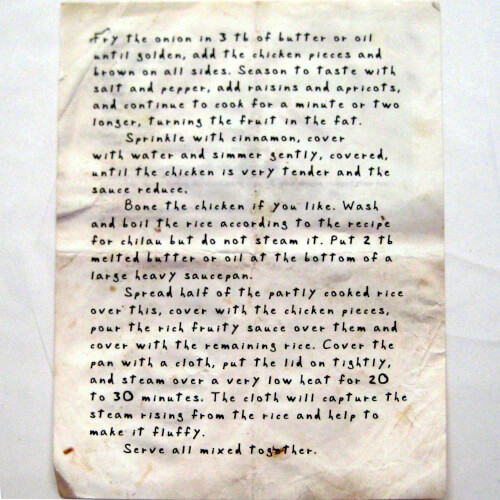 Fry the onion in 3 tb of butter or oil
until golden, add the chicken pieces and
brown on all sides. Season to taste with
salt and pepper, add raisins and apricots,
and continue to cook for a minute or two
longer, turning the fruit in the fat.
Sprinkle with cinnamon, cover
with water and simmer gently, covered,
until the chicken is very tender and the
sauce reduce.
Bone the chicken if you like. Wash
and boil the rice according to the recipe
for chilau but do not steam it. Put 2 tb
melted butter or oil at the bottom of a
large heavy saucepan.
Spread half of the partly cooked rice
over this, cover with the chicken pieces,
pour the rich fruity sauce over them and
cover with the remaining rice. Cover the
pan with a cloth, put the lid on tightly,
and steam over a very low heat for 20
to 30 minutes. The cloth will capture the
steam rising from the rice and help to
make it fluffy.
Serve all mixed together.